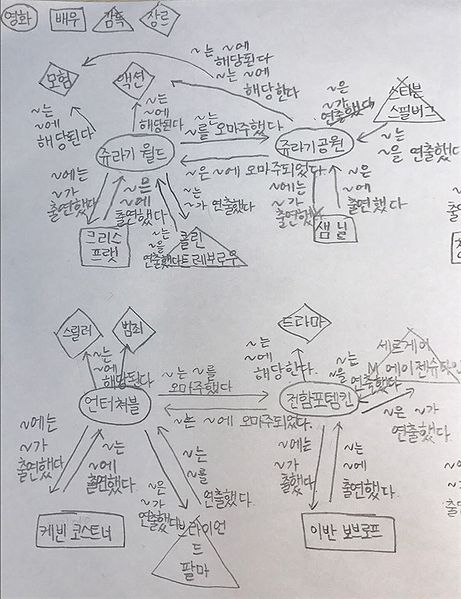 영화 배우 감독 장르
모험
액션
~는 ~에
해당된다
~는 ~에
해당한다
~는
~에
해당된다
~는
~에
해당된다
~은
~가
연출했다
스티븐
스필버그
쥬라기 월드
~는
~를 오마주했다
쥬라기공원
~는
~을 연출했다
~은 ~에 오마주되었다
~에는
~가
출연했다
~은
~에
출연했다
~는
~가 연출했다
~에는
~가
출연했다
~은
~에
출연했다
크리스
프랫
~는
~을
연출했다
콜린
트레보로우
샘 닐
스릴러
범죄
드라마
세르게이
M 에이젠슈타인
~는
~에
해당된다
~는
~에
해당한다.
~는
~을 연출했다
언터쳐블
~는 ~를
오마주했다
전함포템킨
~는 ~에 오마주되었다.
~은 ~가
연출했다.
~에는
~가
출연했다
~는
~에
출연했다.
~는
~를
연출했다.
~은
~가
연출했다
~에는
~가
출연했다
~는
~에
출연했다.
케빈 코스트너
브라이언
드
팔마
이반 보브로프